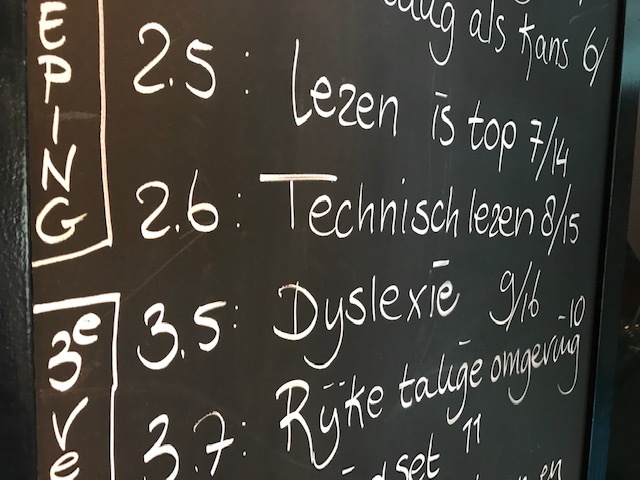 als Kans 6/
2.5: Lezen is top 7/14
2.6: Technisch lezen 8/15
3.5: Dyslexie 9/16
3.7: Rijke talige omgeving -10
set 11
EPING
3e
ve